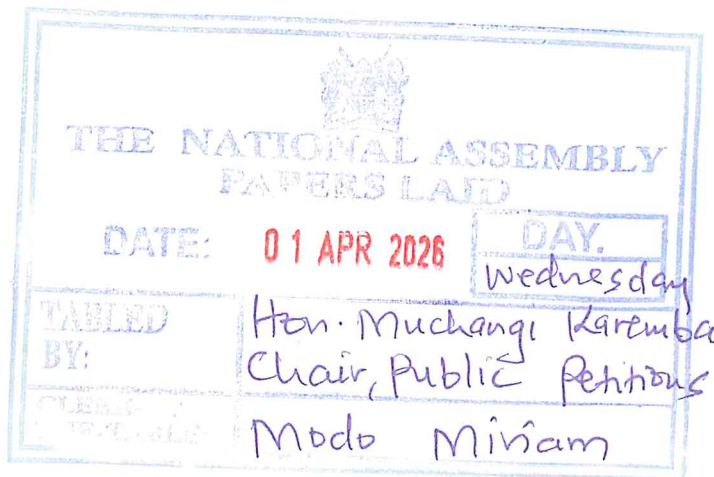 THE NATIONAL ASSEMBLY
PAPERS LAID
DATE: 01 APR 2026 DAY.
Wednesday
TABLED BY: Hon. Muchangi Karemba
Chair, Public Petitions
CLERK Modo Miriam